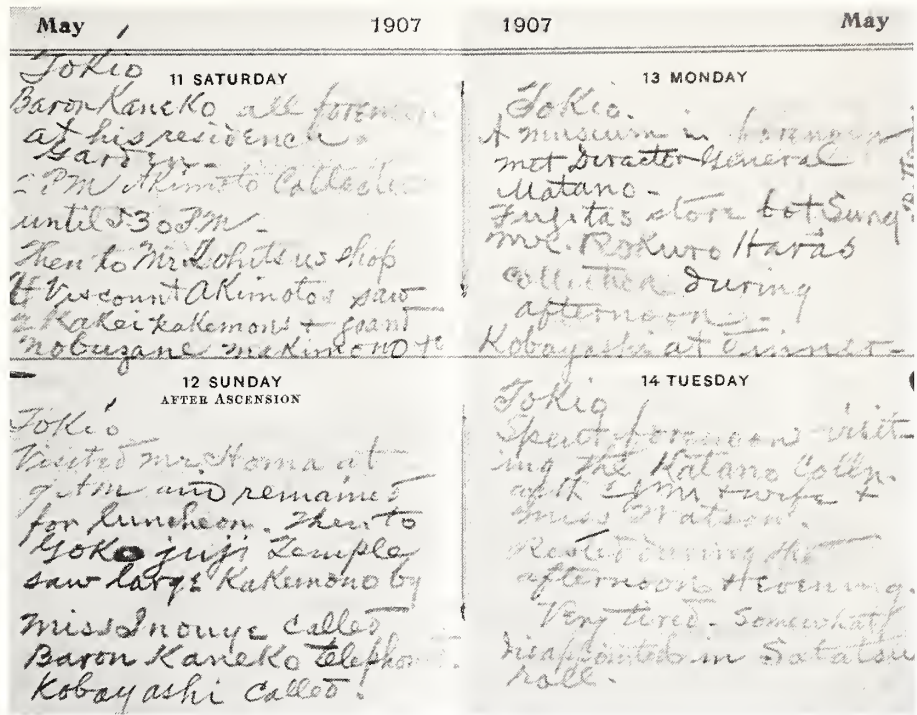 May 1907
Tokio
11 SATURDAY
Baron Kaneko all forenoon
at his residence
Garden -
2 PM Akimoto Collection
until 530 PM -
Then to Mr shop
Viscount Akimotos saw
2 Kakei kakemons +
nobuzane makimono
12 SUNDAY
AFTER ASCENSION
Tokio
Visited Mr Homa at
9 AM and remained
for luncheon. Then to
Gokojuji Temple
saw large Kakemono by
Miss Inouye called
Baron Kaneko telephon
Kobayashi called.
1907 May
13 MONDAY
Tokio.
museum in forenoon
met Director General
Matano -
Fujitas store bot Sung
Mr. Rokuro Haras
collection during
afternoon -
Kobayashi at dinner -
14 TUESDAY
Tokio
Spent forenoon visit-
ing the Katano Colln.
with Mr + wife +
Miss Watson.
Rested during the
afternoon + evening.
Very tired. Somewhat
disappointed in Sotatsu
roll.